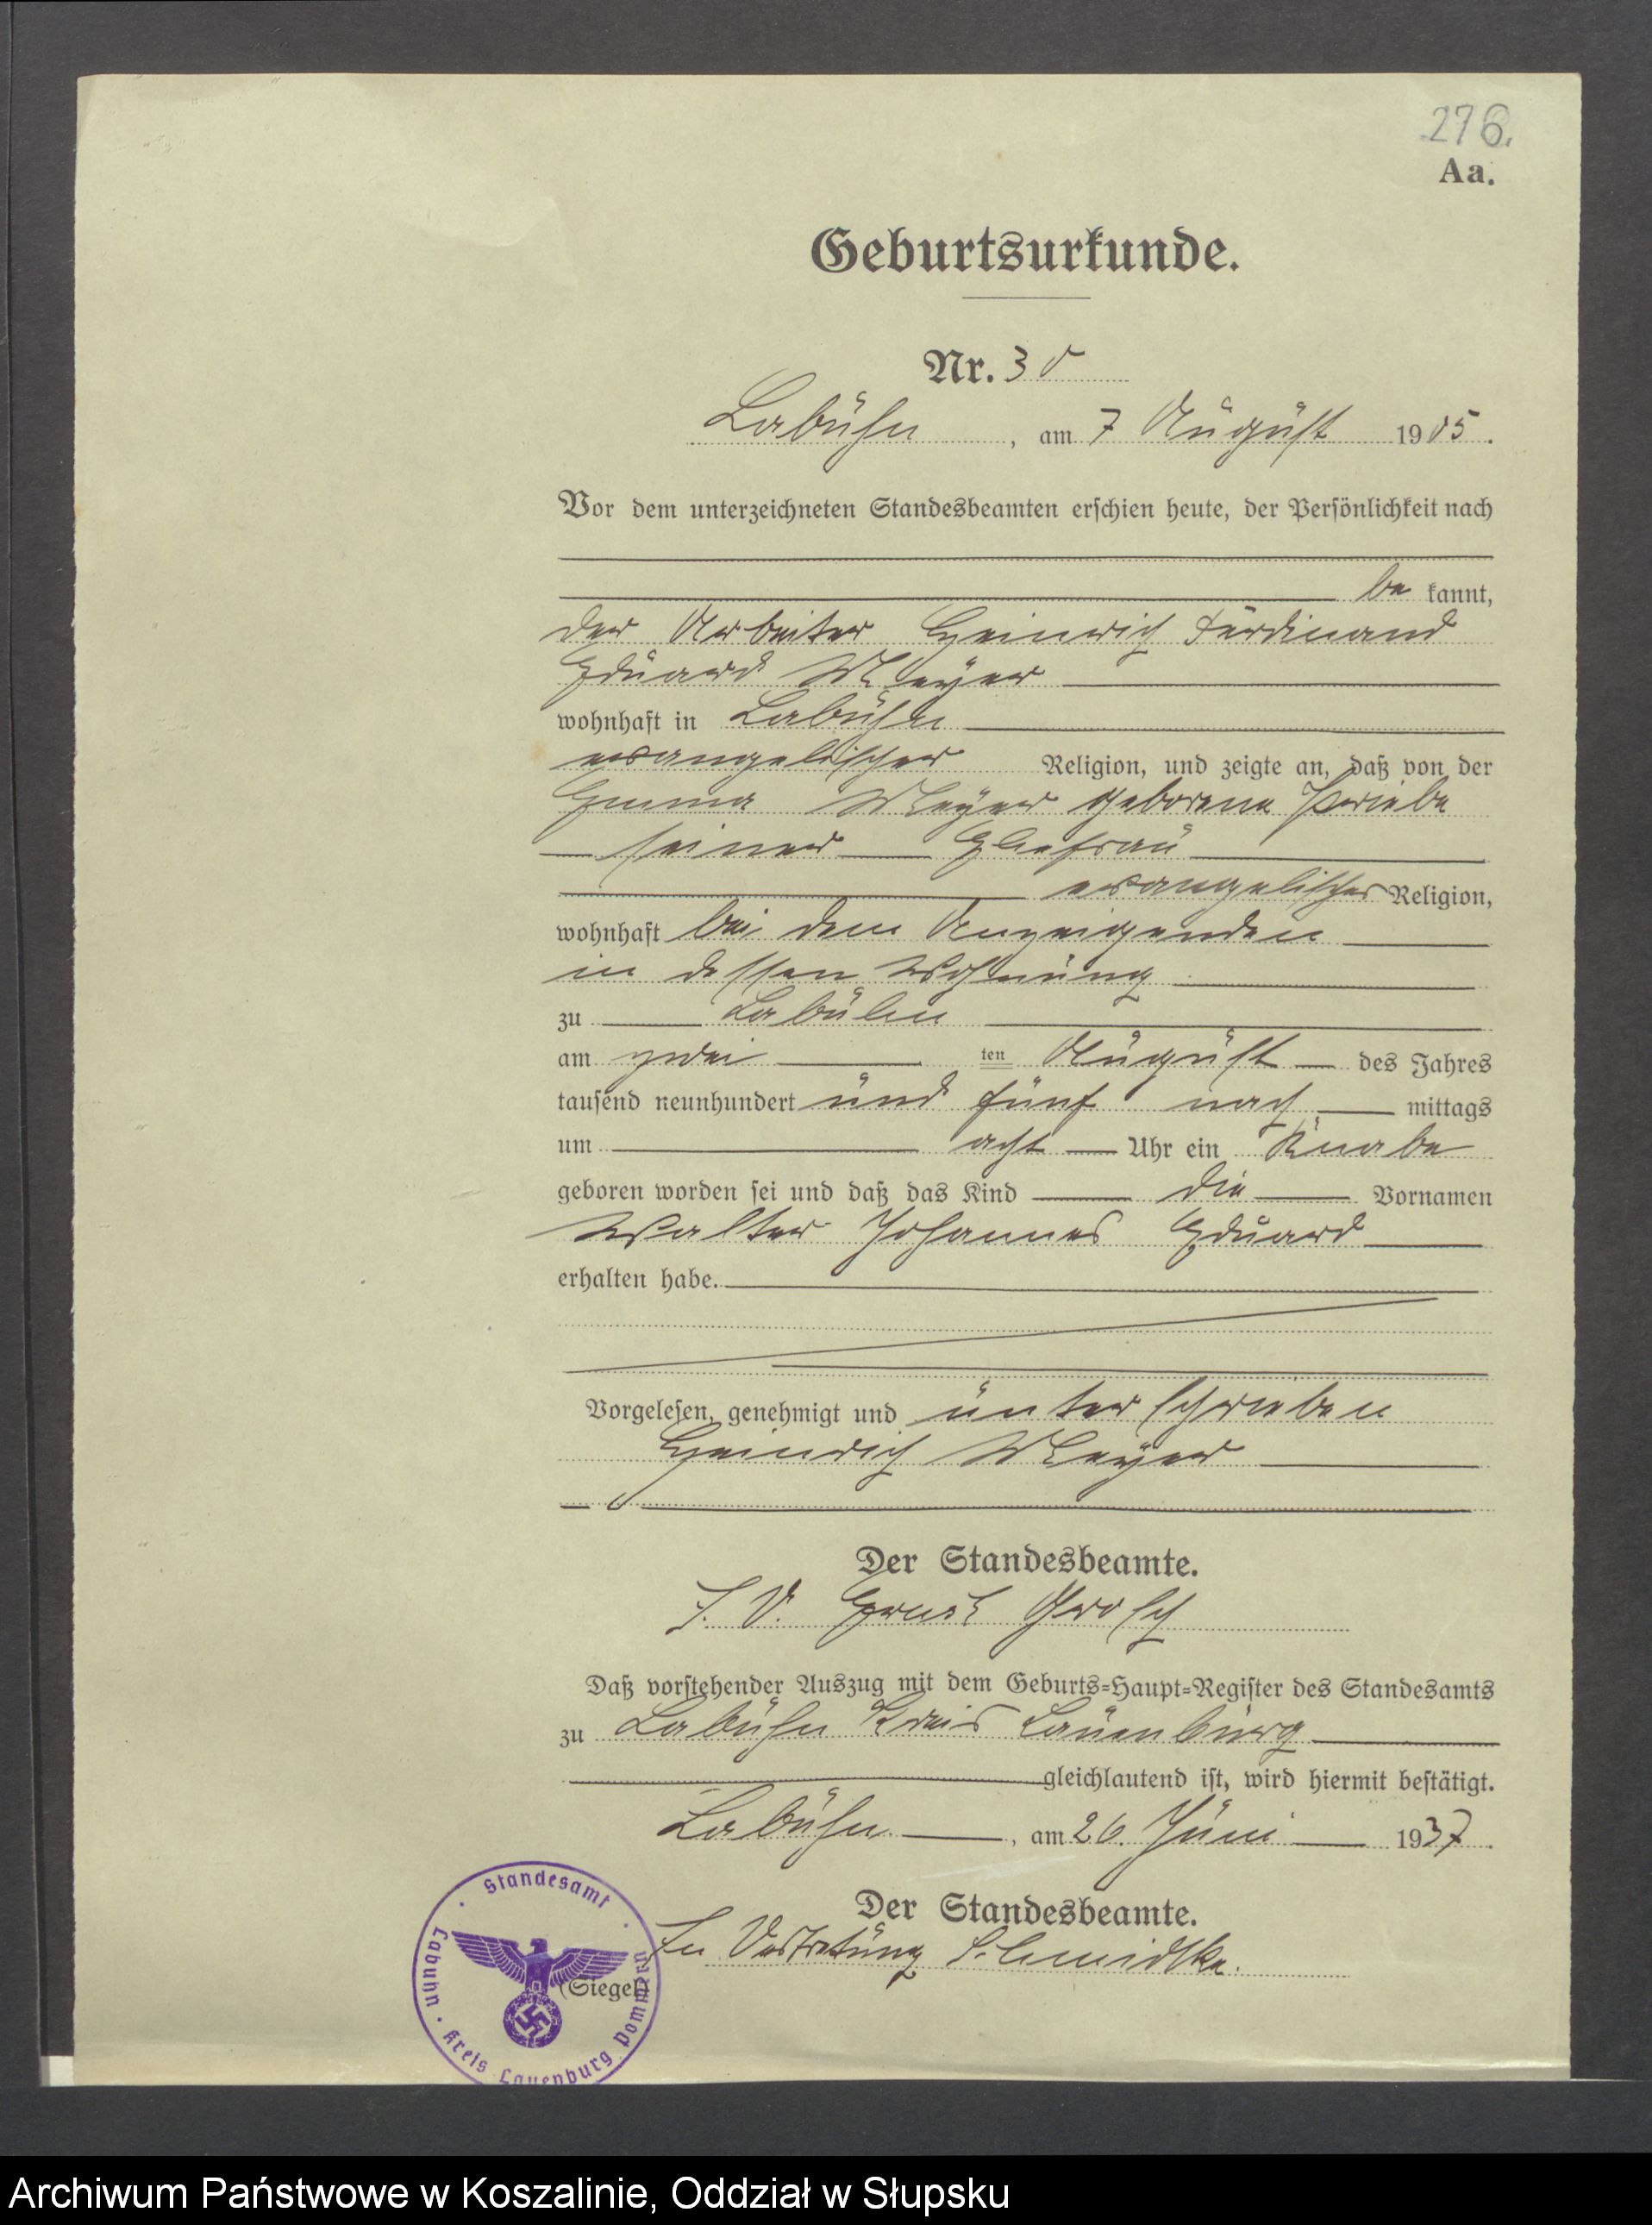 276.
Aa.
Geburtsurkunde.
Nr. 30
Labuhn, am 7 August 1905.
Vor dem unterzeichneten Standesbeamten erschien heute, der Persönlichkeit nach
be kannt,
der Arbeiter Heinrich Ferdinand
Eduard Meyer
wohnhaft in Labuhn
evangelischer Religion, und zeigte an, daß von der
Emma Meyer geborene Priebe
seiner Ehefrau
evangelischer Religion,
wohnhaft bei dem Anzeigenden
in dessen Wohnung
zu Labuhn
am zwei ten August des Jahres
tausend neunhundert und fünf nach mittags
um acht Uhr ein Knabe
geboren worden sei und daß das Kind die Vornamen
Walter Johannes Eduard
erhalten habe.
Vorgelesen, genehmigt und unterschrieben
Heinrich Meyer
Der Standesbeamte.
I. V. Ernst Grosch
Daß vorstehender Auszug mit dem Geburts-Haupt-Register des Standesamts
zu Labuhn Kreis Lauenburg
gleichlautend ist, wird hiermit bestätigt.
Labuhn, am 26. Juni 1937.
Der Standesbeamte.
In Vertretung Schmidtke.
(Siegel)
Standesamt Labuhn · Kreis Lauenburg Pommern
Archiwum Państwowe w Koszalinie, Oddział w Słupsku